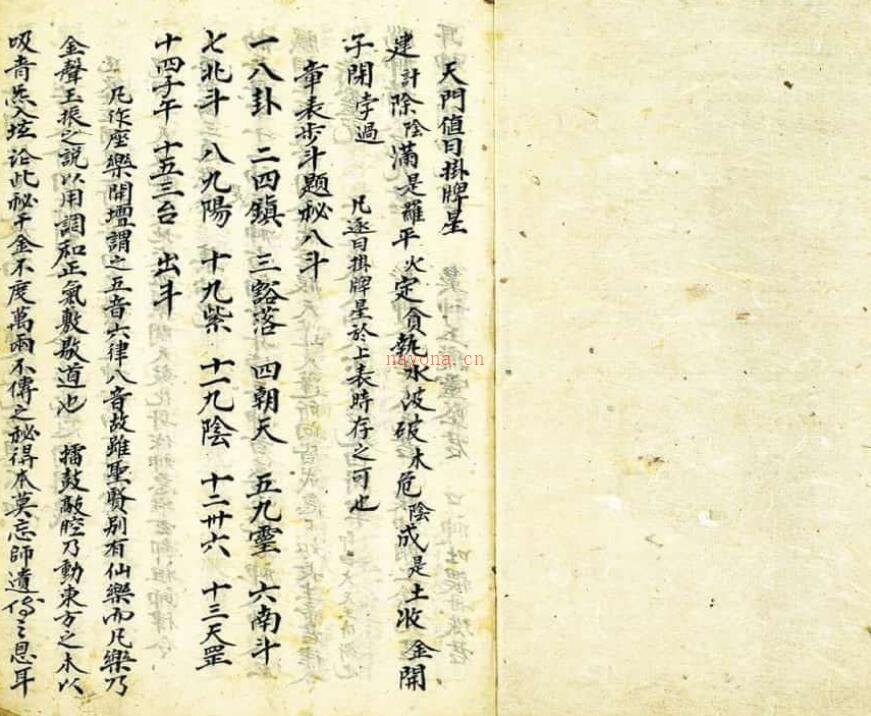 天門值日掛牌星
建計除陰滿是羅平火定貪執水破木危陰成是土收金開
子閉孛過　凡逐日掛牌星於上表時存之可也
章表步斗題秘八斗
一八卦　二四鎮　三豁落　四朝天　五九靈　六南斗
七北斗　三八九陽　十九紫　十一九陰　十二卅六　十三天罡
十四子午　十五三台　出斗
凡作座樂開壇謂之五音六律八音故雖聖賢別有仙樂而凡樂乃
金聲玉振之說以用調和正氣敷敭道也　擂鼓敲腔乃動東方之木以
吸青炁入壇論此秘千金不度萬兩不傳之秘得本莫忘師遺傳之恩耳
nayona.cn